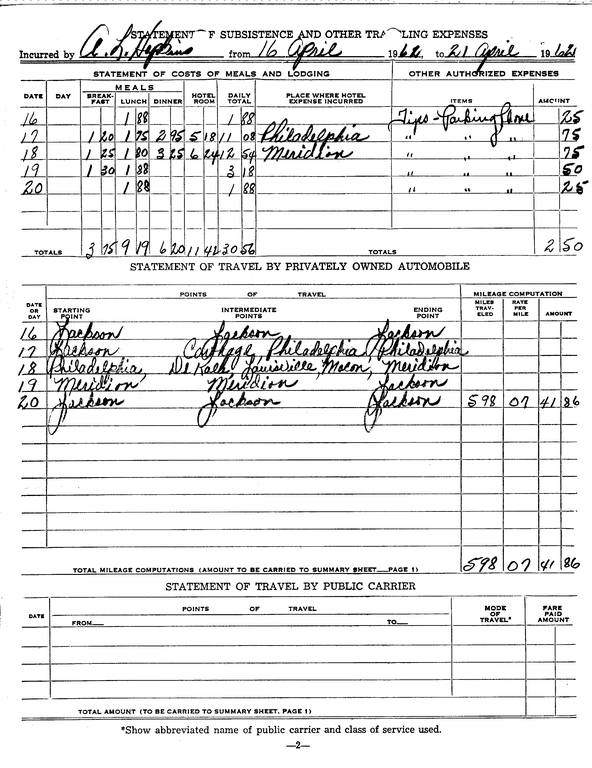 STATEMENT OF SUBSISTENCE AND OTHER TRAVELLING EXPENSES
Incurred by A. L. Hopkins from 16 April 1962, to 21 April 1962
STATEMENT OF COSTS OF MEALS AND LODGING OTHER AUTHORIZED EXPENSES
DATE DAY MEALS BREAK-FAST LUNCH DINNER HOTEL ROOM DAILY TOTAL PLACE WHERE HOTEL EXPENSE INCURRED ITEMS AMOUNT
16 1 88 1 88 Tips - Parking Phone 25
17 1 20 1 75 2 95 5 18 11 08 Philadelphia " " " 75
18 1 25 1 80 3 25 6 24 12 54 Meridion " " " 75
19 1 30 1 88 3 18 " " " 50
20 1 88 1 88 " " " 25
TOTALS 3 75 9 19 6 20 11 42 30 56 TOTALS 2 50
STATEMENT OF TRAVEL BY PRIVATELY OWNED AUTOMOBILE
DATE OR DAY POINTS OF TRAVEL MILEAGE COMPUTATION
STARTING POINT INTERMEDIATE POINTS ENDING POINT MILES TRAV-ELED RATE PER MILE AMOUNT
16 Jackson Jackson Jackson
17 Jackson Carthage, Philadelphia Philadelphia
18 Philadelphia, De Kalb, Louisville, Macon, Meridion
19 Meridion Meridion Jackson
20 Jackson Jackson Jackson 598 07 41 86
TOTAL MILEAGE COMPUTATIONS (AMOUNT TO BE CARRIED TO SUMMARY SHEET__PAGE 1) 598 07 41 86
STATEMENT OF TRAVEL BY PUBLIC CARRIER
DATE POINTS OF TRAVEL MODE OF TRAVEL* FARE PAID AMOUNT
FROM__ TO__
TOTAL AMOUNT (TO BE CARRIED TO SUMMARY SHEET. PAGE 1)
*Show abbreviated name of public carrier and class of service used.
—2—